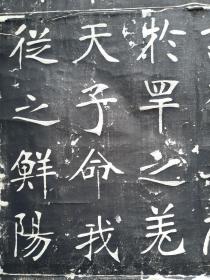 於罕之羌
天子命我
從之鮮陽